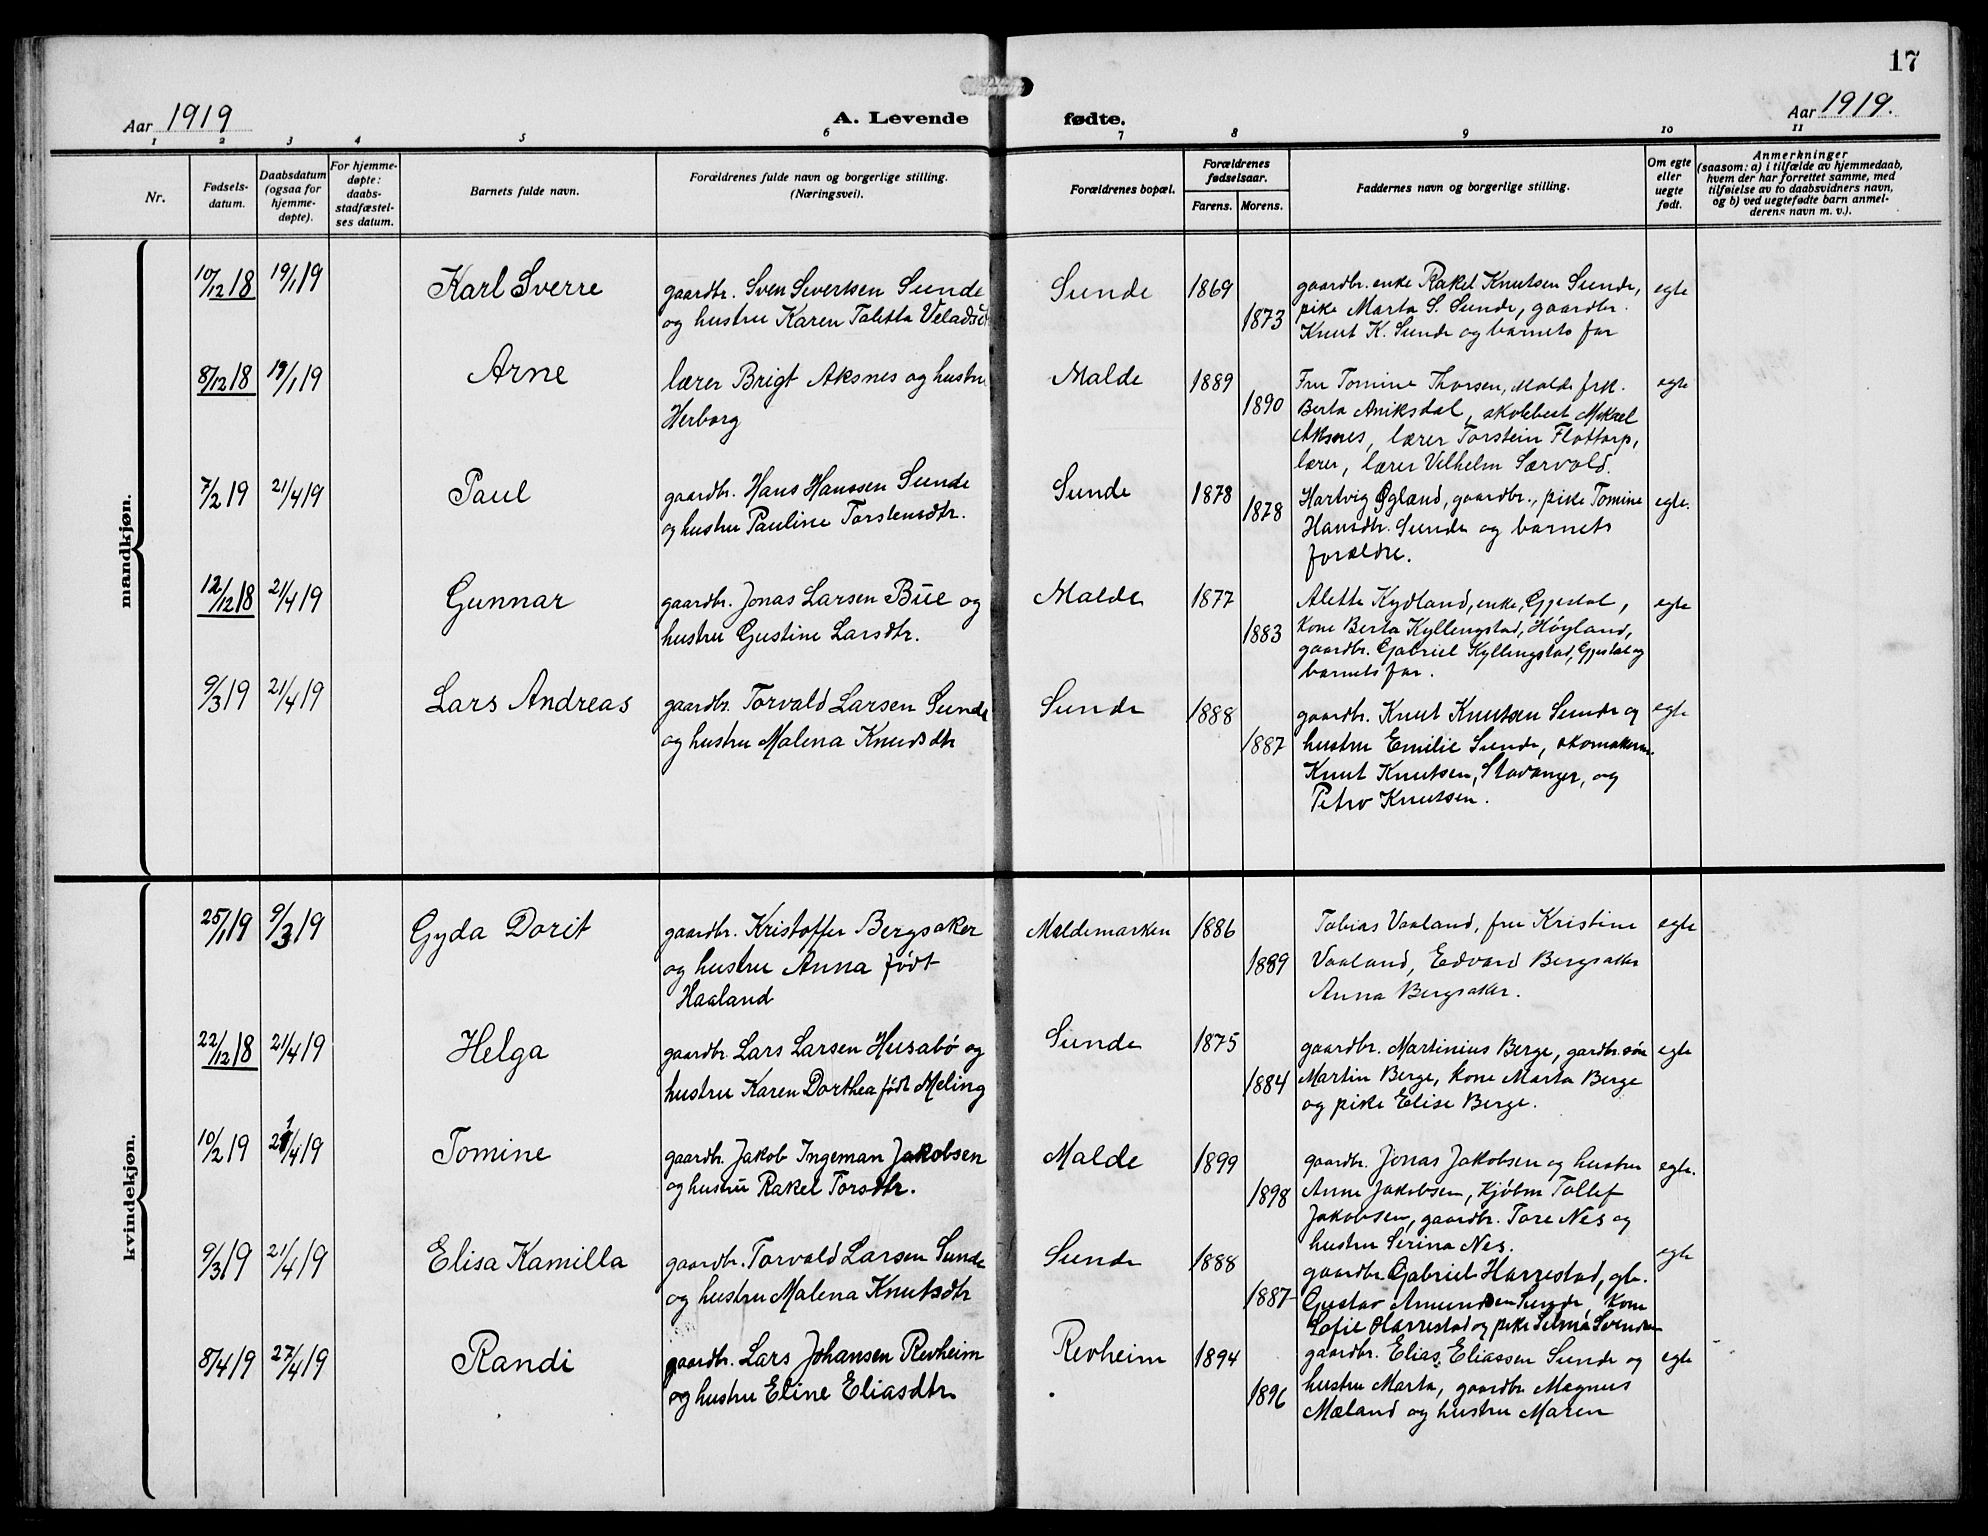 17
Aar 1919
A. Levende
fødte.
Aar 1919.
1 2 3 4 5 6 7 8 9 10 11
Nr.
Fødsels-
datum.
Daabsdatum
(ogsaa for
hjemme-
døpte).
For hjemme-
døpte:
daabs-
stadfæstel-
ses datum.
Barnets fulde navn.
Forældrenes fulde navn og borgerlige stilling.
(Næringsvei).
Forældrenes bopæl.
Forældrenes
fødselsaar.
Farens. Morens.
Faddernes navn og borgerlige stilling.
Om egte
eller
uegte
født.
Anmerkninger
(saasom: a) i tilfælde av hjemmedaab,
hvem der har forrettet samme, med
tilføielse av to daabsvidners navn,
og b) ved uegtefødte barn anmel-
derens navn m. v.).
mandkjøn.
10/12 18 19/1 19 Karl Sverre
gaardbr. Sven Sivertsen Sunde
og hustru Karen Taletta
Sunde 1869 1873
gaardbr. enke Rakel Knutsen Sunde,
pike Marta S. Sunde, gaardbr.
Knut K. Sunde og barnets far
egte
8/12 18 19/1 19 Arne
lærer Brigt Aksnes og hustru
Herborg
Malde 1889 1890
Fru Tomine Thorsen, Malde frk.
Berta Aniksdal, skolebest Mikael
Aksnes, lærer Torstein Flottorp,
lærer, lærer Vilhelm Særvold.
egte
7/2 19 21/4 19 Paul
gaardbr. Hans Hanssen Sunde
og hustru Pauline Torstensdtr.
Sunde 1878 1878
Hartvig Øgland, gaardbr., pike Tomine
Hansdtr. Sunde og barnets
forældre.
egte.
12/12 18 21/4 19 Gunnar
gaardbr. Jonas Larsen Bue og
hustru Gustine Larsdtr.
Malde 1877 1883
Alette Kydland, enke, Gjestal,
Kone Berta Kyllingstad, Høyland,
gaardbr. Gabriel Kyllingstad, Gjestal og
barnets far.
egte
9/3 19 21/4 19 Lars Andreas
gaardbr. Torvald Larsen Sunde
og hustru Malena Knudsdtr
Sunde 1888 1887
gaardbr. Knut Knutsen Sunde og
hustru Emilie Sunde, skomaker
Knut Knutsen, Stavanger, og
Petra Knutsen.
egte
kvindekjøn.
25/1 19 9/3 19 Gyda Dorit
gaardbr. Kristoffer Bergsaker
og hustru Anna født
Haaland
Maldemarken 1886 1889
Tobias Vaaland, fru Kristine
Vaaland, Edvard Bergsaker
Anna Bergsaker.
egte
22/12 18 21/4 19 Helga
gaardbr. Lars Larsen Husabø og
hustru Karen Dorthea født Meling
Sunde 1875 1884
gaardbr. Martinius Berge, gardbr. søn
Martin Berge, kone Marta Berge
og pike Elise Berge.
egte
10/2 19 21/4 19 Tomine
gaardbr. Jakob Ingeman Jakobsen
og hustru Rakel Torsdtr.
Malde 1899 1898
gaardbr. Jonas Jakobsen og hustru
Anne Jakobsen, Kjøbm Tollef
Jakobsen, gaardbr. Tore Nes og
hustru Serina Nes.
egte.
9/3 19 21/4 19 Elisa Kamilla
gaardbr. Torvald Larsen Sunde
og hustru Malena Knutsdtr
Sunde 1888 1887
gaardbr. Gabriel Harrestad, gbr.
Gustav Amundsen Sunde, Kone
Sofie Harrestad og pike Selma Svendsen
egte
8/4 19 27/4 19 Randi
gaardbr. Lars Johansen Revheim
og hustru Eline Eliasdtr
Revheim 1894 1896
gaardbr. Elias Eliassen Sunde og
hustru Marta, gaardbr Magnus
Mæland og hustru Maren
egte